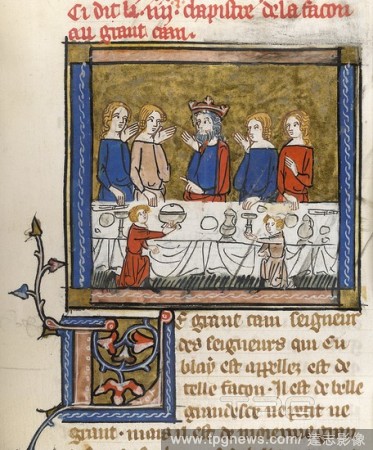 Ci dit li .iiij. chapistre de la facon
au grant caan.
Le grant caan seigneur
des seigneurs qui Cu
blay est appellez est de
telle facon. Il est de belle
grandesce ne petit ne
grant. mais il est de moienne
www.tpgnews.com / 達志影像